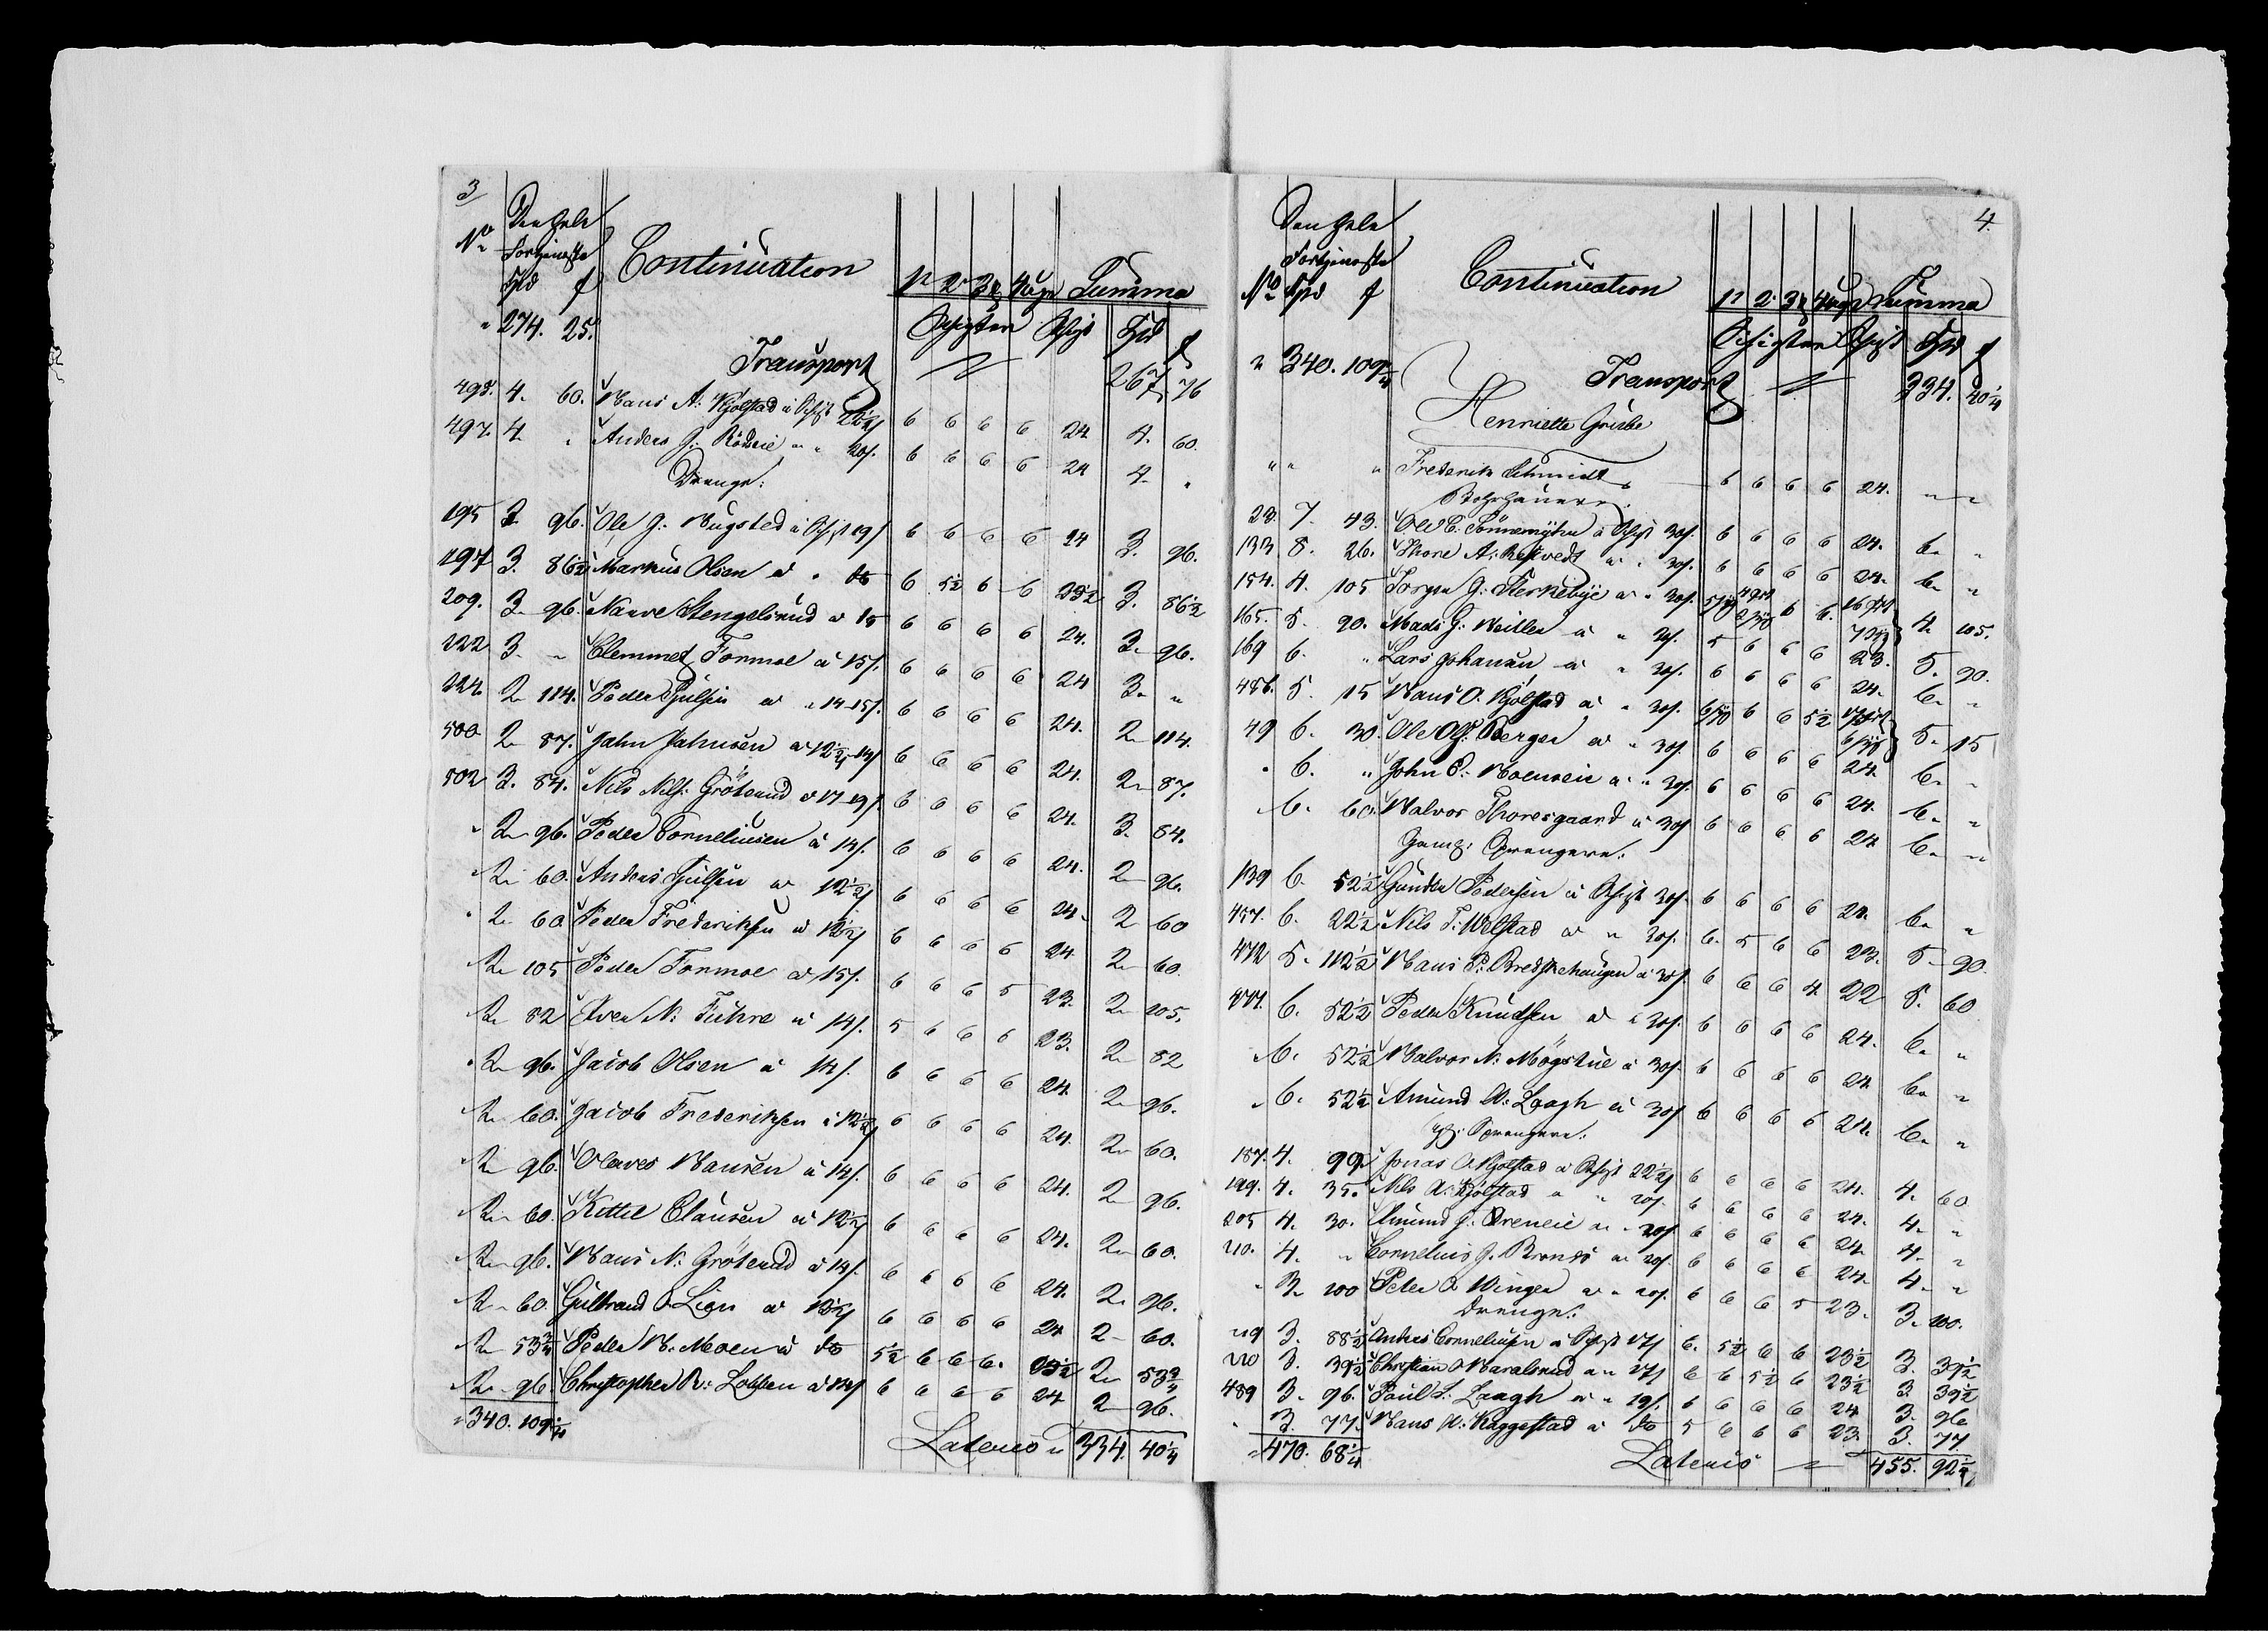 3
Den hele
No Fortjeneste Continuation 1e 2e 3e 4 Uge Summa
Spd f Schigter Schigt Spd f
" 274. 25. Transport 267. 76
498. 4. 60. Hans A: Kjølstad à Schigt 22½ f 6 6 6 6 24 4. 60.
497. 4. " Anders G: " " 20f. 6 6 6 6 24 4. "
Drenge:
195 3. 96. Ole J: Bugsted à Schigt 19f 6 6 6 6 24 3. 96.
197 3. 86½ Markus Olsen à " do 6 5½ 6 6 23½ 3. 86½
209. 3. 96. Stengelsrud à 19 6 6 6 6 24. 3. 96.
222 3. " Clemmet Formoe à 15f. 6 6 6 6 24 3. "
224. 2. 114. Peder à " 14-15f. 6 6 6 6 24. 2. 114.
500 2. 87. Jahn Jahnsen à 12½-14f 6 6 6 6 24. 2. 87.
502 3. 84. Nils Nils: Grötsrud à 17-19f. 6 6 6 6 24. 3. 84.
" 2. 96. Peder Corneliusen à 14f. 6 6 6 6 24. 2. 96.
" 2. 60. Anders à 12½f 6 6 6 6 24. 2. 60
" 2. 60. Peder Frederiksen à 12½f 6 6 6 6 24 2. 60.
" 2. 105 Peder Formoe à 15f. 6 6 6 5 23. 2. 105.
" 2. 82 Iver N: Fuhre à 14f. 5 6 6 6 23. 2. 82
" 2. 96. Jacob Olsen à 14f. 6 6 6 6 24. 2. 96.
" 2. 60. Jacob Frederiksen à 12½f 6 6 6 6 24. 2. 60.
" 2. 96. Olaves Hansen à 14f. 6 6 6 6 24. 2. 96.
" 2. 60. Kittil Clausen à 12½f 6 6 6 6 24. 2. 60.
" 2. 96. Hans N: Grötsrud à 14f. 6 6 6 6 24. 2. 96.
" 2. 60. Gulbrand O. Lien à 12½f 6 6 6 6 24 2. 60.
" 2. 53¾ Peder H: Moen à do 5½ 6 6 6. 23½ 2. 53¾
" 2. 96. Christopher R: à 14f 6 6 6 6 24 2. 96.
" 340. 109¼ Lateris " 334. 40¼
4.
Den hele
Fortjeneste Continuation
No Spd f 1e 2e 3e 4 Uge Summa
Schigter Schigt Spd f
" 340. 109¼ Transport 334. 40¼
Henriette Grube
" " " Frederik Schmidt 6 6 6 6 24. " "
Borhauere
23. 7. 43. Ole C: à Schigt 30f. 6 6 6 6 24. 6. "
133 8. 26. Thore A: à " 30f. 6 6 6 6 24. 6. "
154. 4. 105 Jørgen G: Sterkebye à " 30f. 6 6. 4. 105.
165. 5. 90. Mads G: à " 30f. 5 6 6 6 23. 5. 90.
169 6. " Lars Johansen à " 30f. 6 6 6 6 24. 6. "
456. 5. 15 Hans O. Kjølstad à " 30f. 6 6 5½ 5. 15
49 6. 30. Ole Ols: Berger à " 30f. 6 6 6 6 24. 6. "
" 6. " John P: à " 30f. 6 6 6 6 24. 6. "
" 6. 60. Halvor Thoresgaard à 30f 6 6 6 6 24 6. "
Sprengere:
139 6. 52½ Gunder Pedersen à Schigt 30f 6 6 6 6 24. 6. "
457. 6. 22½ Nils T: à " 30f. 6. 5 6 6 23. 5. 90.
472 5. 112½ Hans P: à 30f. 6 6 6 4. 22 5. 60
477. 6. 52½ Peder Knudsen à " 30f. 6 6 6 6 24. 6. "
" 6. 52½ Halvor N: Mögstue à 30f. 6 6 6 6 24. 6. "
" 6. 52½ Amund A: Laagh à 30f 6 6 6 6 24. 6. "
Sprengere:
187. 4. 99. Jonas O. Kjølstad à Schigt 22½f 6 6 6 6 24. 4. 60
199. 4. 35. Nils A: Kjølstad à " 20f. 6 6 6 6 24. 4. "
205 4. 30. Amund J: à " 20f 6 6 6 6 24. 4. "
210. 4. " Cornelius J. à 20f. 6 6 6 6 24. 4. "
" 3. 100 Peter O. Winger à " 20f. 6 6 6 5 23. 3. 100.
Drenge:
219 3. 88½ Anders Corneliusen à Schigt 17f 6. 5½ 6 6 23½ 3. 39½
220 3. 39½ Christian O. à " 17f 6 6 5½ 6 23½ 3. 39½
489 3. 96. Paul L: Laagh à " 19f. 6 6 6 6 24 3. 96
" 3. 77. Hans H: Kaggestad à do 5 6 6 6 23. 3. 77
" 470. 68¼ Lateris 455. 92¼